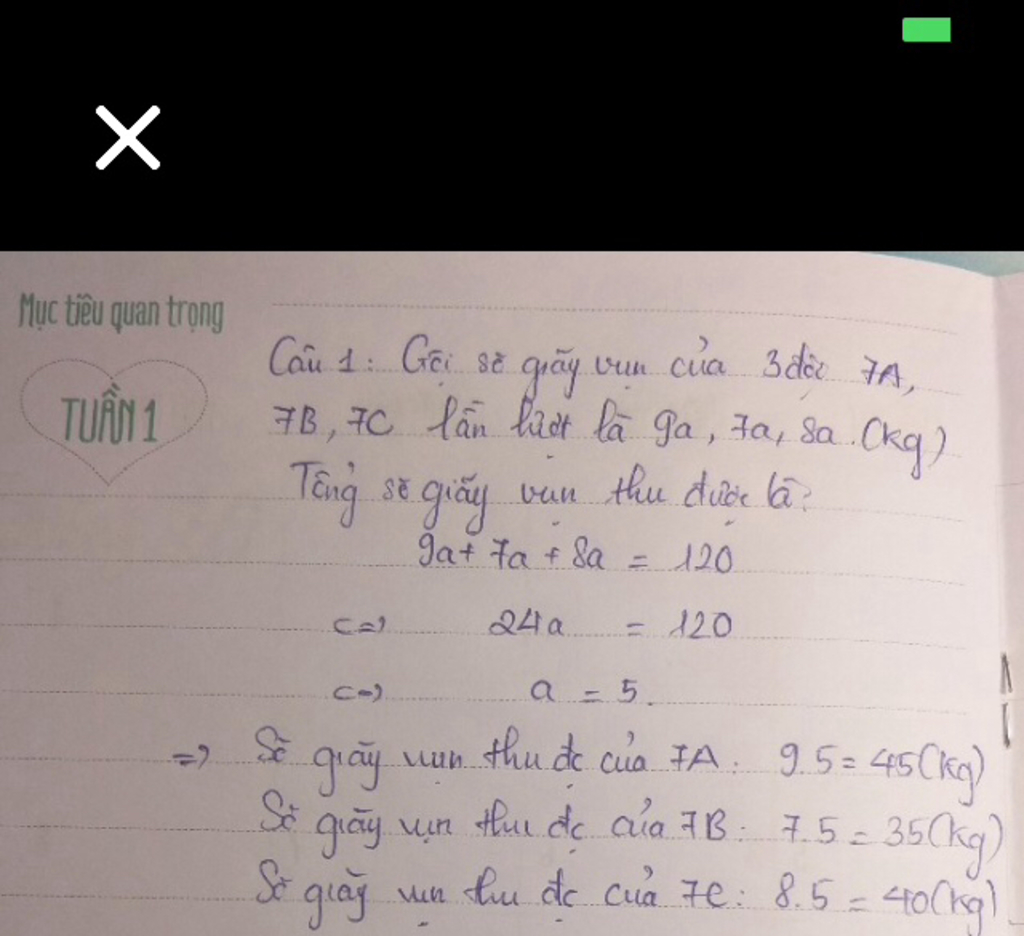 Mục tiêu quan trọng
TUẦN 1
Câu 1: Gọi số giấy vụn của 3 đội 7A,
7B, 7C lần lượt là 9a, 7a, 8a (kg)
Tổng số giấy vụn thu được là:
9a + 7a + 8a = 120
<=> 24a = 120
<=> a = 5.
=> Số giấy vụn thu đc của 7A: 9.5 = 45 (kg)
Số giấy vụn thu đc của 7B: 7.5 = 35 (kg)
Số giấy vụn thu đc của 7C: 8.5 = 40 (kg)